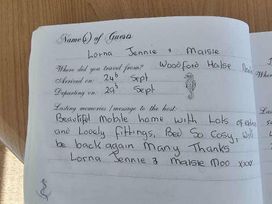 Name(s) of Guests
Lorna Jennie & Maisie
Where did you travel from? Woodford Halse
Arrived on: 24th Sept
Departing on: 29th Sept
Lasting memories / message to the host:
Beautiful mobile home with Lots of extras
and Lovely fittings, Bed So Cosy, Will
be back again Many Thanks
Lorna Jennie & maisie Moo xxxx